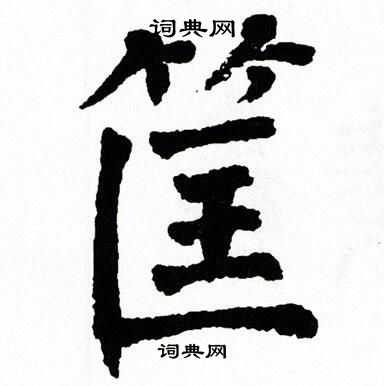 词典网
筐
词典网